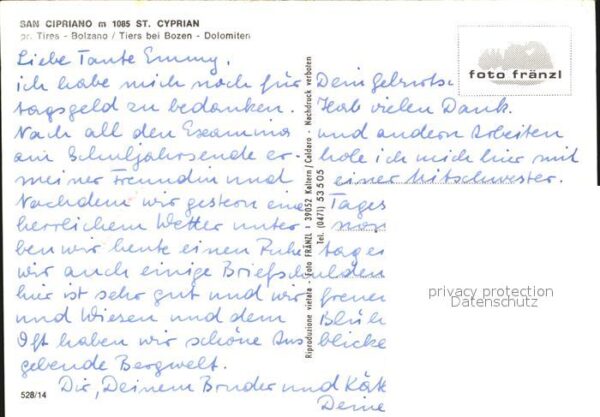 SAN CIPRIANO m 1085 ST. CYPRIAN
pr. Tires - Bolzano / Tiers bei Bozen - Dolomiten
Liebe Tante Emmy,
ich habe mich noch für Dein Geburts
tagsgeld zu bedanken. Hab vielen Dank.
Nach all den Examina und andern Arbeiten
am Schuljahrsende er- hole ich mich hier mit
meiner Freundin und einer Mitschwester.
Nachdem wir gestern eine Tages
herrlichem Wetter unter
ben wir heute einen Ruhe tage
wir auch einige Briefschulden
hier ist sehr gut und wir freuen
und Wiesen und dem Blüh
Oft haben wir schöne Aus blicke
gebende Bergwelt.
Dir, Deinem Bruder und Kät
Deine
528/14
Riproduzione vietata - Foto FRÄNZL - 39052 Kaltern / Caldaro - Nachdruck verboten
Tel. (0471) 53505
foto fränzl
privacy protection
Datenschutz